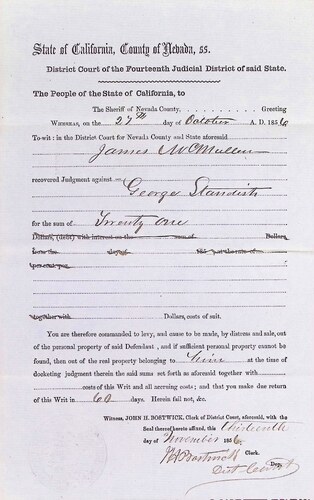 State of California, County of Nevada, ss.
District Court of the Fourteenth Judicial District of said State.
The People of the State of California, to
The Sheriff of Nevada County, Greeting
Whereas, on the 27th day of October A. D. 1856,
To-wit: in the District Court for Nevada County and State aforesaid
James McMullen
recovered Judgment against
George Standish
for the sum of Twenty one
Dollars, (debt) with interest on the sum of Dollars
from the day of 185
personal
together with Dollars, costs of suit.
You are therefore commanded to levy, and cause to be made, by distress and sale, out
of the personal property of said Defendant, and if sufficient personal property cannot be
found, then out of the real property belonging to him at the time of
docketing judgment therein the said sums set forth as aforesaid together with
costs of this Writ and all accruing costs; and that you make due return
of this Writ in 60 days. Herein fail not, &c.
Witness, JOHN H. BOSTWICK, Clerk of District Court, aforesaid, with the
Seal thereof hereto affixed, this thirteenth
day of November 1856.
Bostwick Clerk.
Dep.